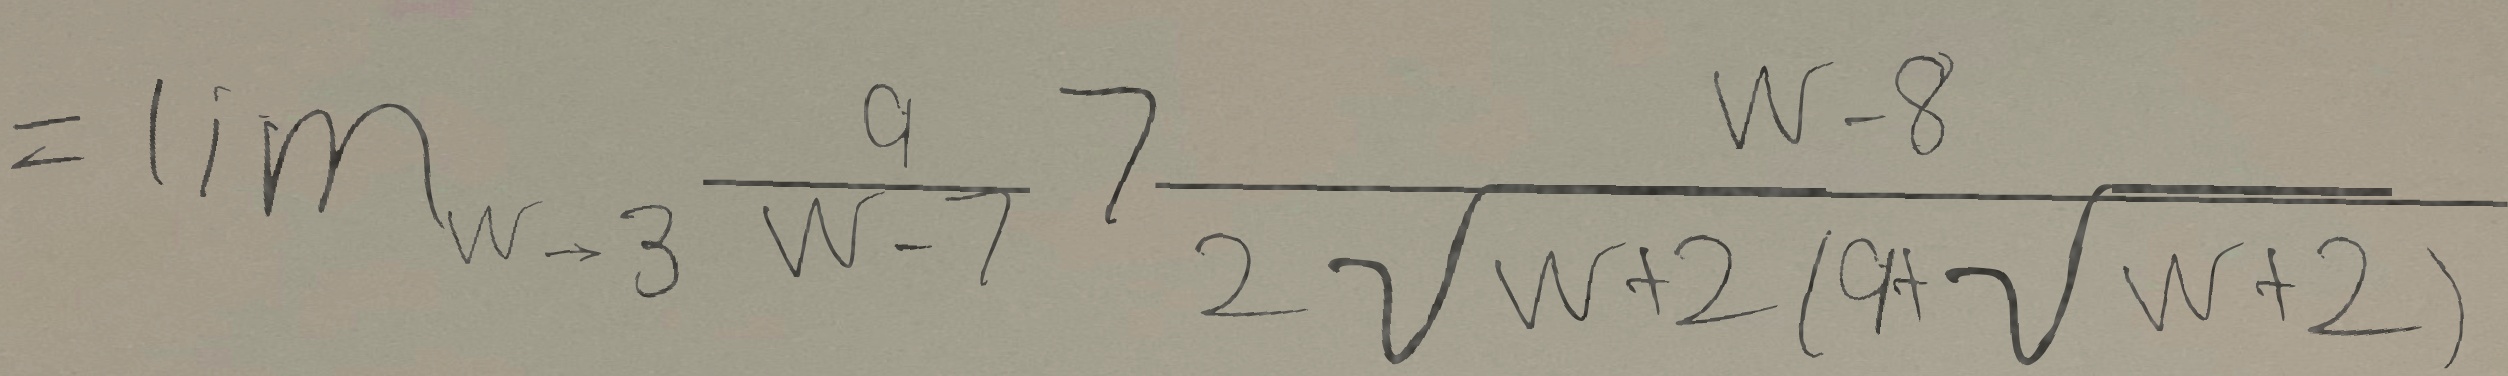 = \lim_{w \to 3} \frac{9}{w-7} 7 \frac{w-8}{2\sqrt{w+2}(9+\sqrt{w+2})}